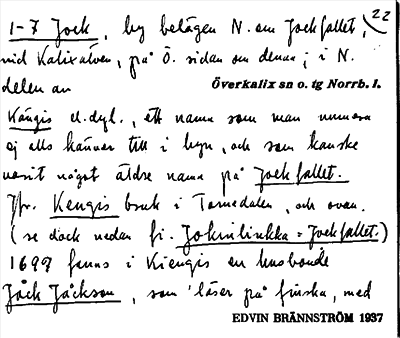 1-7 Jock, by belägen N. om Jockfallet, 22
vid Kalixälven, på Ö. sidan om denna; i N.
delen av Överkalix sn o. tg Norrb. l.
Kängis el. dyl., ett namn som man numera
ej alls känner till i byn, och som kanske
varit något äldre namn på Jockfallet.
Jfr. Kengis bruk i Tornedalen, och ovan.
(se dock nedan fi. Jokinlinkka = Jockfallet.)
1699 fanns i Kiengis en husbonde
Jåck Jåckson, som "läser på finska, med
EDVIN BRÄNNSTRÖM 1937